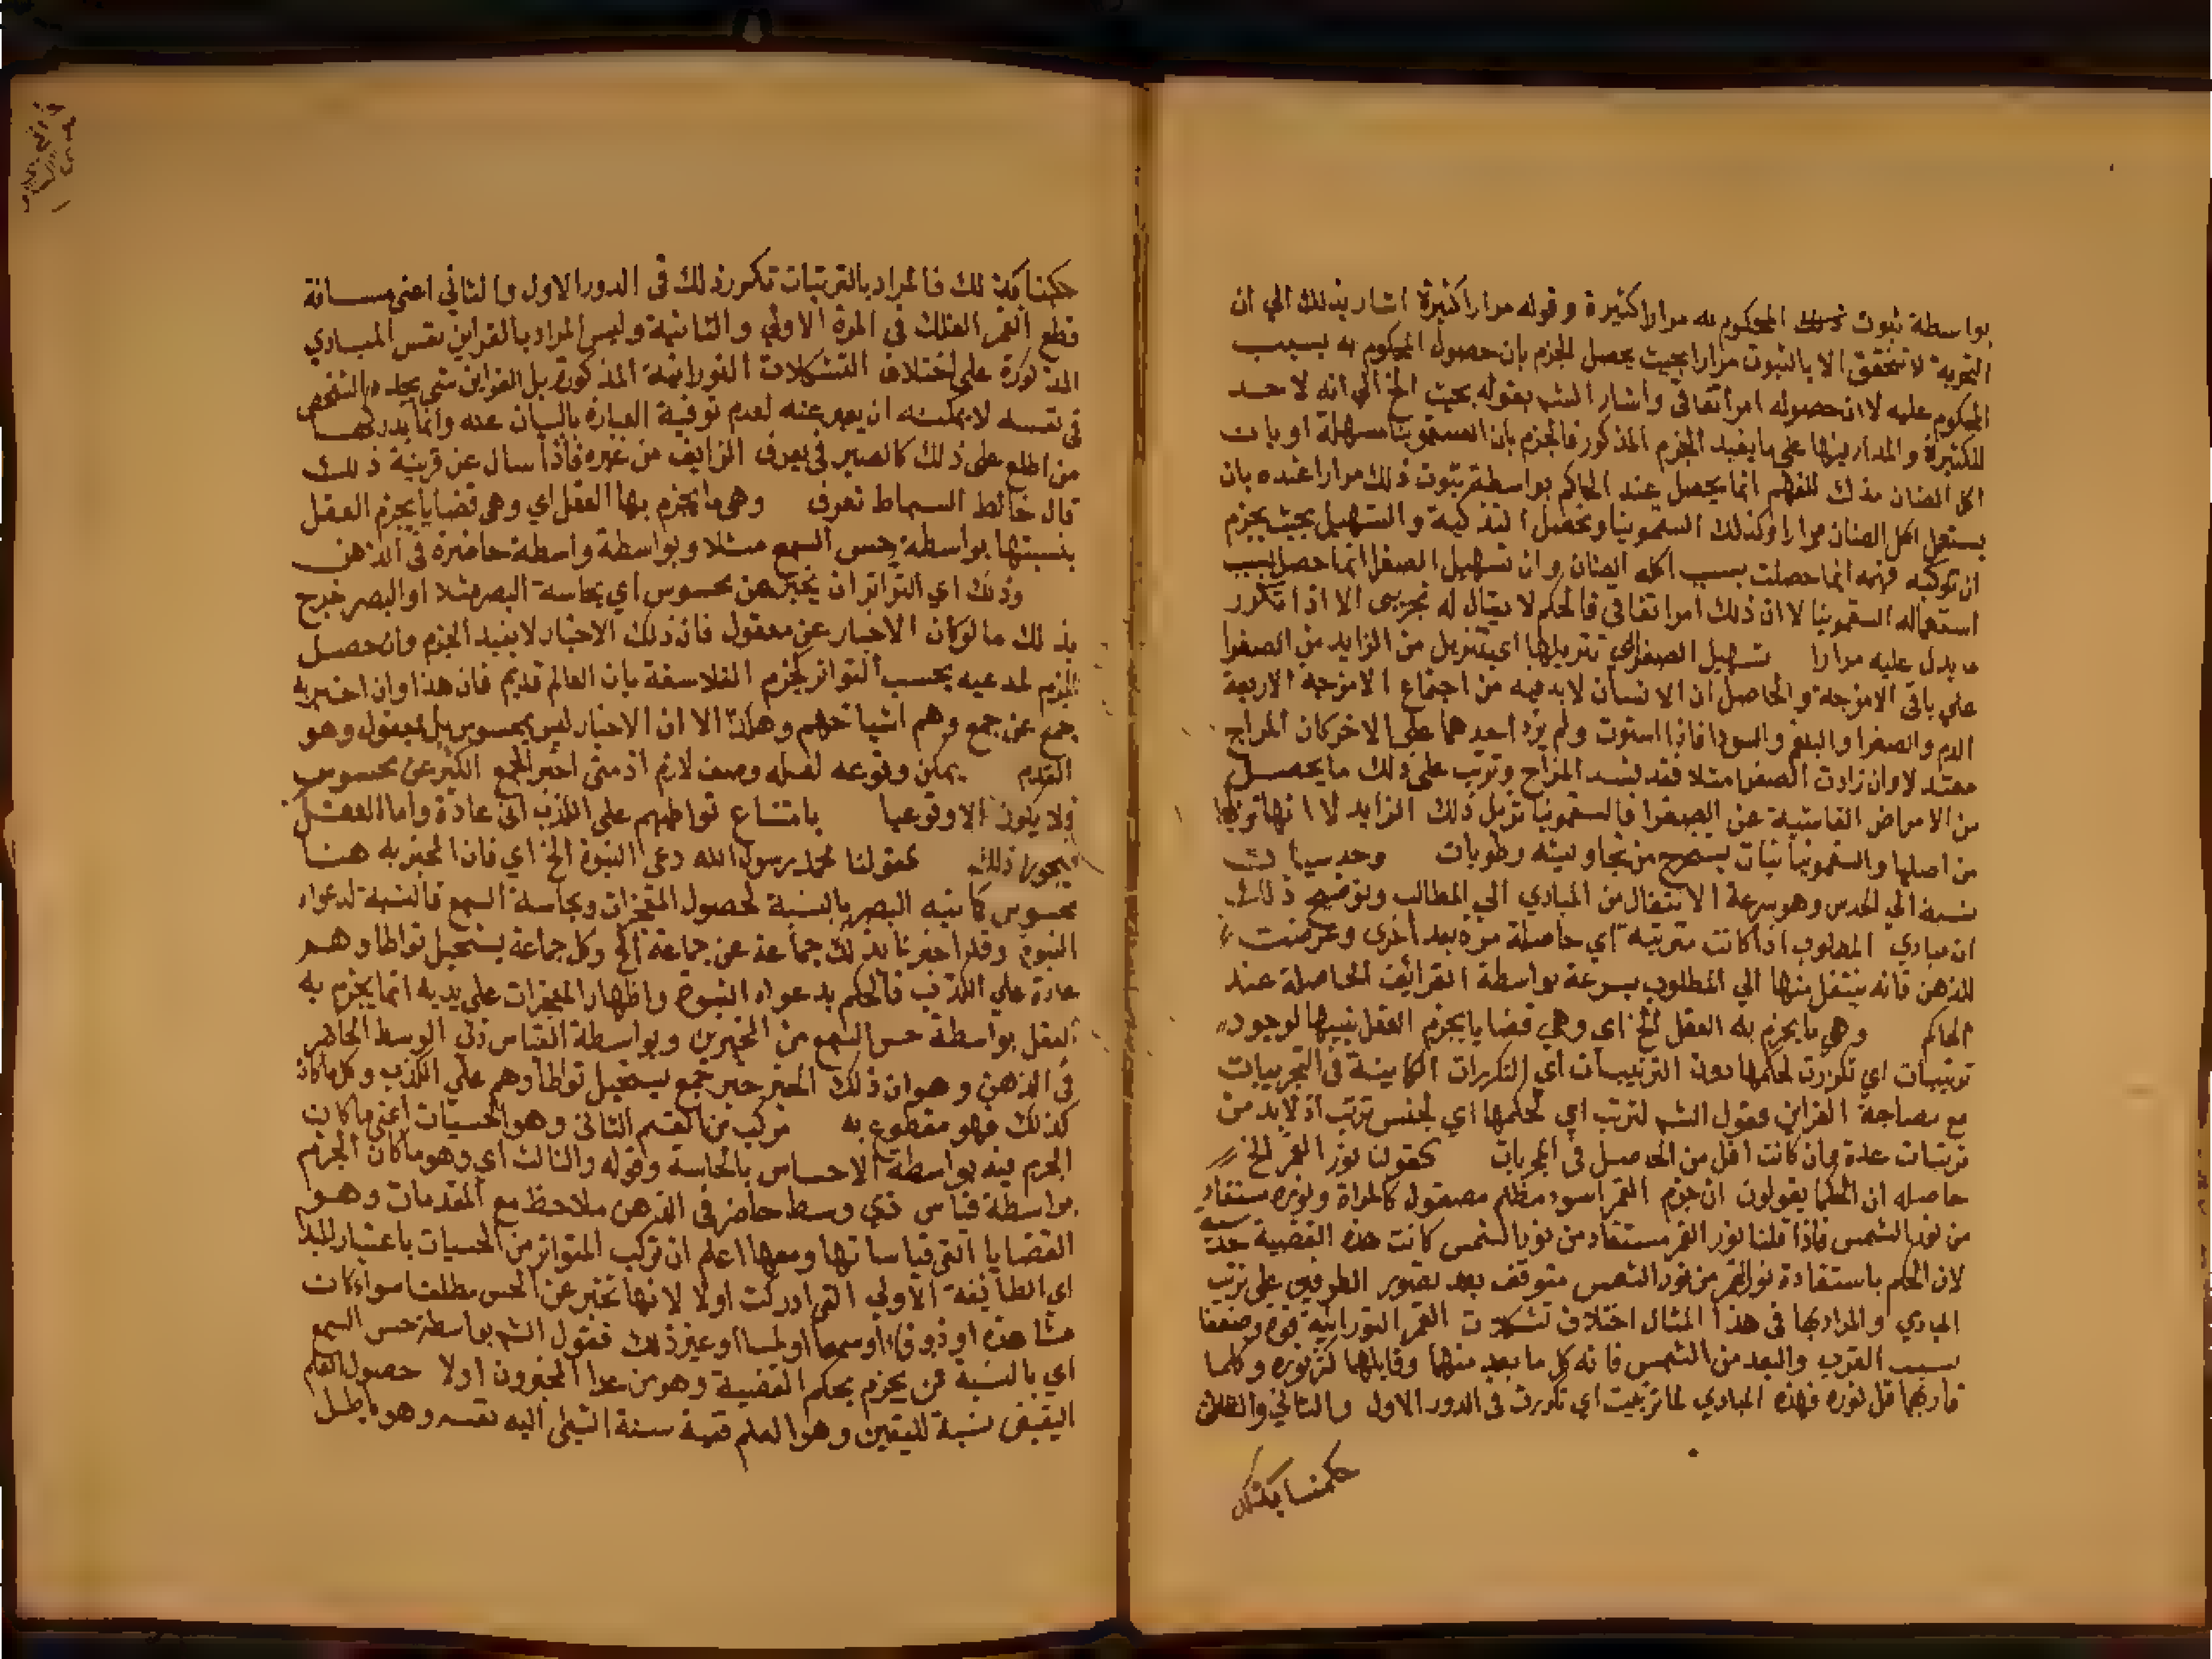 بواسطة ثبوت ذلك المحكوم به مرارا كثيرة وقوله مرارا كثيرة اشار بذلك الي ان
التجربة لا تتحقق الا بالثبوت مرارا بحيث يحصل الجزم بان حصول المحكوم به بسبب
المحكوم عليه لا ان حصوله امر اتفاقي واشار الشم بقوله بحيث الخ الي انه لا حد
للكثيرة والمدار فيها على ما يفيد الجزم المذكور فالجزم بان السقمونيا مسهلة او بان
اكل الضان مذك للفهم انما يحصل عند الحاكم بواسطة ثبوت ذلك مرارا عنده بان
يستعمل اكل الضان مرارا وكذلك السقمونيا وتحصل التذكية والتسهيل بحيث يجزم
ان توكيه فهمه انما حصلت بسبب اكله الضان وان تسهيل الصفرا انما حصل بسبب
استعماله السقمونيا لا ان ذلك امر اتفاقي فالحكم لا يقال له تجريبي الا اذا تكرر
ما يدل عليه مرارا تسهيل الصفرا اي تنزيلها اي تنزيل من الزايد من الصفرا
علي باقي الامزجة والحاصل ان الانسان لا بد فيه من اجتماع الامزجة الاربعة
الدم والصفرا والبلغم والسودا فاذا استوت ولم يزد احدهما على الاخر كان المزاج
معتدلا وان زادت الصفرا مثلا فقد فسد المزاج وترتب على ذلك ما يحصل
من الامراض الناشية عن الصفرا فالسقمونيا تزيل ذلك الزايد لا انها تزيلها
من اصلها والسقمونيا نبات يستخرج من تجاويفه رطوبات وحدسيات
نسبة الي الحدس وهو سرعة الانتقال من المبادي الي المطالب وتوضيح ذلك
ان مبادي المطلوب اذا كانت مترتبة اي حاصلة مرة بعد اخرى وعرضت
للذهن فانه ينتقل منها الي المطلوب بسرعة بواسطة القرائن الحاصلة عند
الحاكم وهي ما يجزم به العقل الخ اى وهي قضايا يجزم العقل بها لوجود
ترتيبات اي تكررت لحكمها دون الترتيبات اي التكررات الكاينة في التجربيات
مع مصاحبة القراين فقول الشم لترتب اي لحكمها اي لجنس ترتب اذ لا بد من
ترتبات عدة وان كانت اقل من الحاصل في المجربات كقولنا نور القمر الخ
حاصله ان الحكما يقولون ان جرم القمر اسود مظلم مصقول كالمراة ونوره مستفاد
من نور الشمس فاذا قلنا نور القمر مستفاد من نور الشمس كانت هذه القضية حدسية
لان الحكم باستفادة نور القمر من نور الشمس متوقف بعد تصور الطرفين على ترتب
المبادي والمراد بها في هذا المثال اختلاف تشكلات القمر النورانية قوة وضعفا
بسبب القرب والبعد من الشمس فانه كل ما بعد منها وقابلها كثر نوره وكلما
قاربها قل نوره فهذه المبادي لما ترتبت اي تكررت في الدور الاول والثاني والثالث
حكمنا بذلك
حكمنا بذلك فالمراد بالترتبات تكرر ذلك في الدور الاول والثاني اعني مسافة
قطع القمر الفلك في المرة الاولي والثانية وليس المراد بالقراين نفس المبادي
المذكورة على اختلاف التشكلات النورانية المذكورة بل القراين شي يجده الشخص
في نفسه لا يمكنه ان يعبر عنه لعدم توفية العبارة بالبيان عنه وانما يدركها
من اطلع على ذلك كالصير في يعرف الزايف من غيره فاذا سال عن قرينة ذلك
قال خالط السماط تعرف وهي ما يجزم بها العقل اي وهي قضايا يجزم العقل
بنسبتها بواسطة حس السمع مثلا وبواسطة واسطة حاضرة في الذهن
وذلك اي التواتر ان يخبر عن محسوس اي بحاسة البصر مثلا او البصر خرج
بذلك ما لو كان الاخبار عن معقول فان ذلك الاخبار لا يفيد الجزم وان حصل
الجزم لمدعيه بحسب التواتر كجزم الفلاسفة بان العالم قديم فان هذا وان اخبر به
جمع عن جمع وهم اشياخهم وهكذا الا ان الاخبار ليس بمحسوس بل بمعقول وهو
القدم يمكن وقوعه لعله وصف لازم اذ متى اخبر الجمع الكثير عن محسوس
ولا يكون الا وقوعيا بامتناع تواطئهم على الكذب اى عادة واما العقل
فيجوز ذلك كقولنا محمد رسول الله دعى النبوة الخ اي فان المخبر به هنا
محسوس كاينه البصر بالنسبة لحصول المعجزات وبحاسة السمع بالنسبة لدعواه
النبوة وقد اخبرنا بذلك جماعة عن جماعة الخ وكل جماعة يستحيل تواطاوهم
عادة علي الكذب فالحكم بدعواه النبوة واظهار المعجزات على يديه انما يجزم به
العقل بواسطة حس السمع من المخبرين وبواسطة القياس ذي الوسط الحاضر
في الذهن وهو ان ذلك المخبر خبر جمع يستحيل تواطاوهم علي الكذب وكل ما كان
كذلك فهو مقطوع به مركب من القسم الثاني وهو الحسيات اعني ما كان
الجزم فيه بواسطة الاحساس بالحاسة وقوله والثالث اي وهو ما كان الجزم
بواسطة قياس ذي وسط حاضر في الذهن ملاحظ مع المقدمات وهو
القضايا التي قياساتها ومعها اعلم ان تركب المتواتر من الحسيات باعتبار المبدا
اي الطايفة الاولي التي ادركت اولا لانها تخبر عن الحس مطلقا سواء كان
مشاهدة او ذوقا او سمعا او لمسا او غير ذلك فقول الشم بواسطة حس السمع
اي بالنسبة لمن يجزم بحكم القضية وهو من عدا المخبرون اولا حصول العلم
اليقيني نسبة لليقين وهو العلم ففيه نسبة الشي الي نفسه وهو باطل